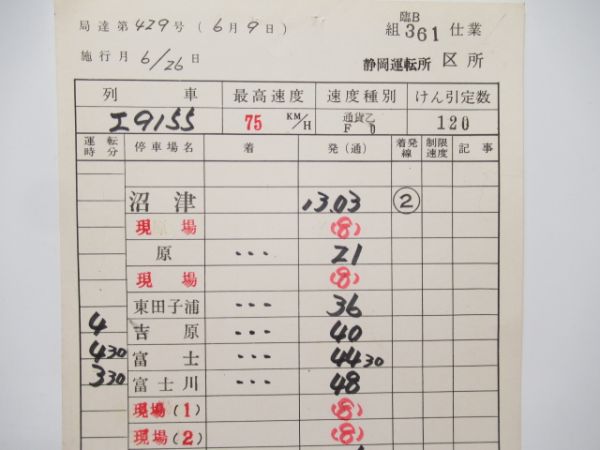 局達第429号(6月9日)
臨B
組361仕業
施行月6/26日
静岡運転所 区所
列車 最高速度 速度種別 けん引定数
エ9155 75 KM/H 通貨乙 F 120
運転時分 停車場名 着 発(通) 着発線 制限速度 記事
沼津 13.03 ②
現場 (8)
原 ・・・ 21
現場 (8)
東田子浦 ・・・ 36
4 吉原 ・・・ 40
430 富士 ・・・ 4430
330 富士川 ・・・ 48
現場(1) (8)
現場(2) (8)